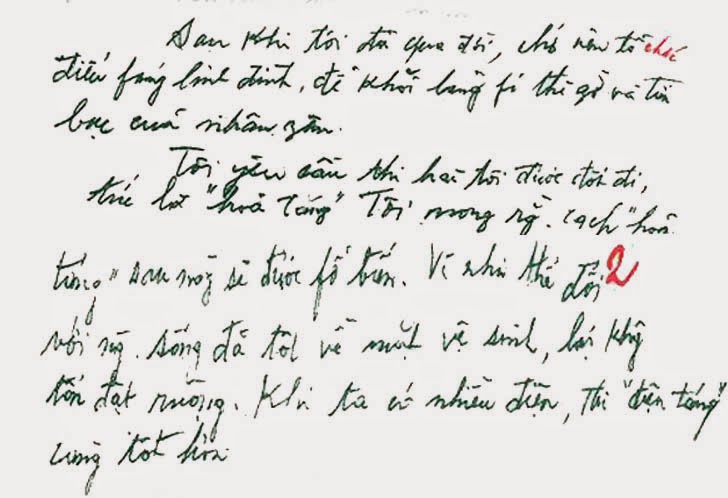 Sau khi tôi đã qua đời, chớ nên tổ chức
điếu fúng linh đình, để khỏi lãng fí thì giờ và tiền
bạc của nhân zân.
Tôi yêu cầu thi hài tôi được đốt đi,
tức là "hoả táng". Tôi mong rằng cách "hoả
táng" sau này sẽ được fổ biến. Vì như thế đối 2
với ng. sống đã tốt về mặt vệ sinh, lại khg
tốn đất ruộng. Khi ta có nhiều điện, thì "điện táng"
càng tốt hơn.